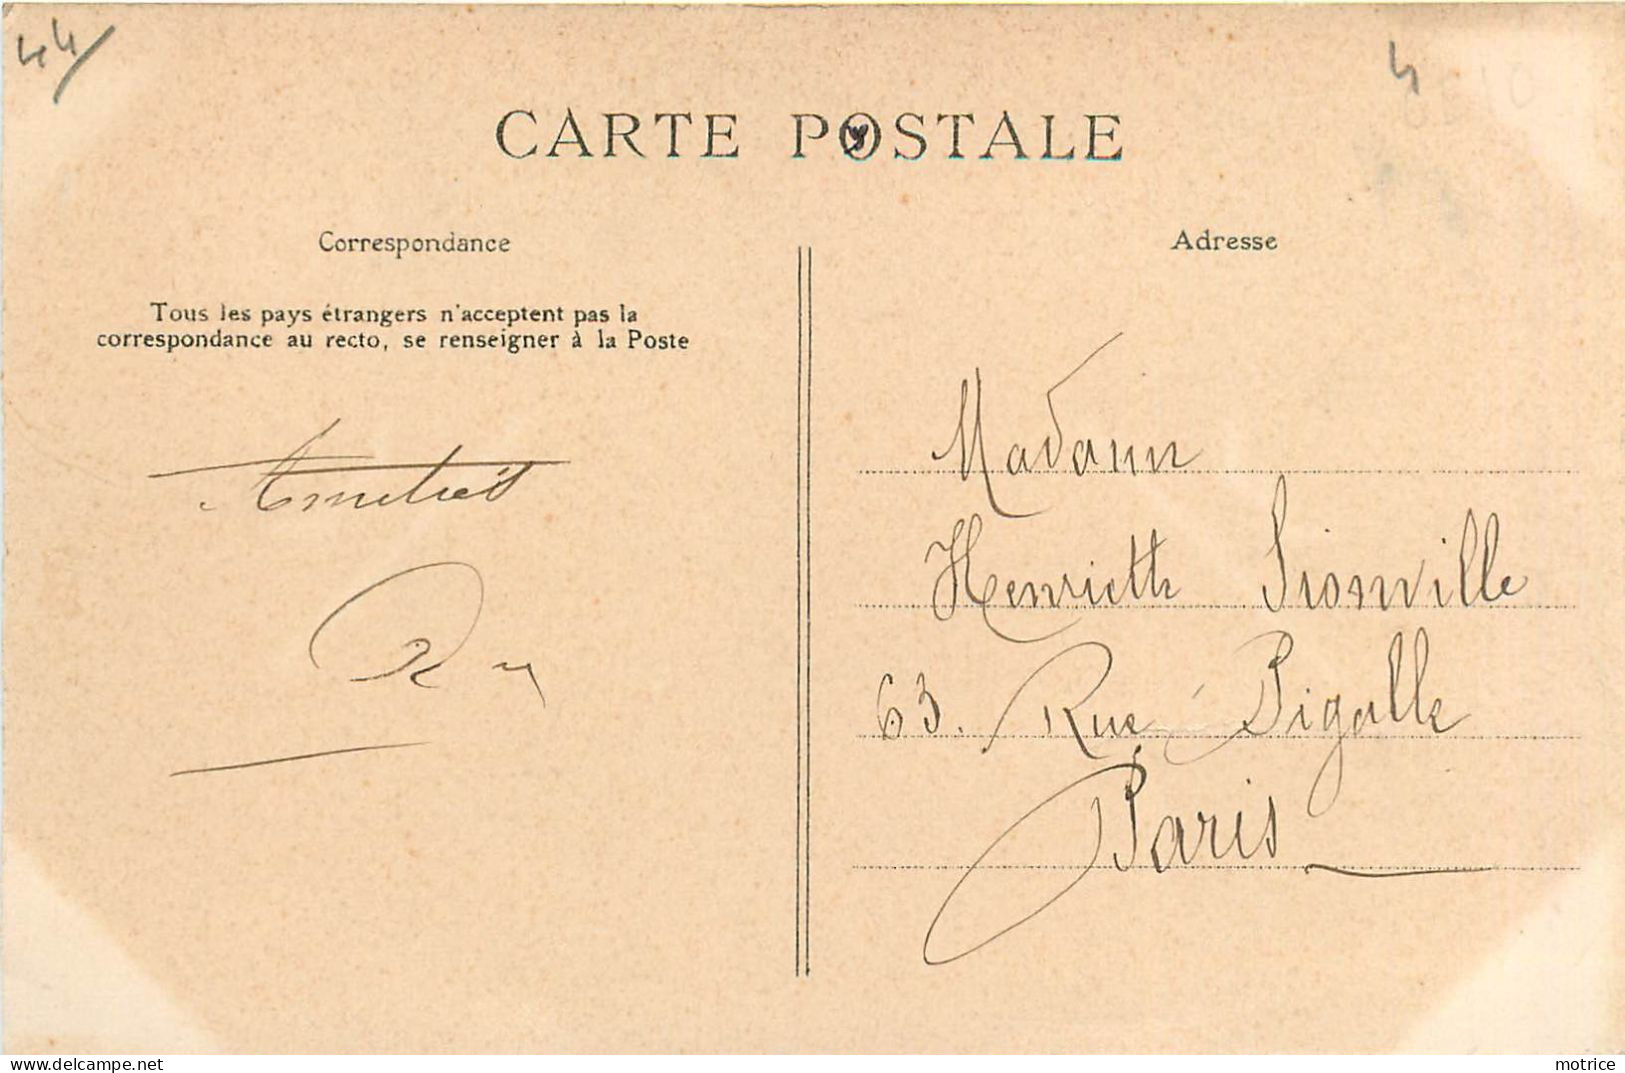 44/
4
CARTE POSTALE
Correspondance
Adresse
Tous les pays étrangers n'acceptent pas la
correspondance au recto, se renseigner à la Poste
Amitiés
Madame
Henriette Sionville
63. Rue Pigalle
Paris
motrice